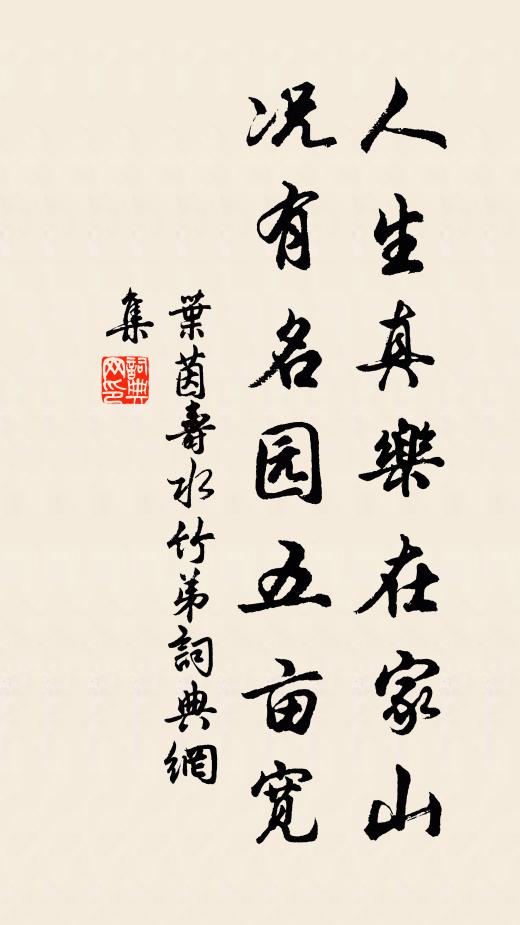 人生真樂在家山
况有名园五亩寬
葉茵壽水竹弟詞典網
集
詞典网印